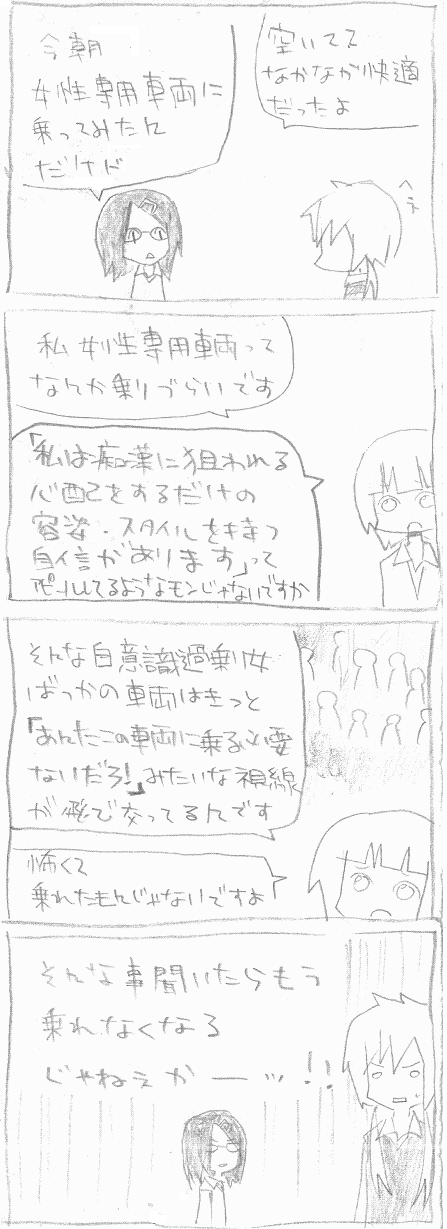 今朝
女性専用車両に
乗ってみたん
だけど
空いてて
なかなか快適
だったよ
へぇ
私女性専用車両って
なんか乗りづらいです
「私は痴漢に狙われる
心配をするだけの
容姿・スタイルを持つ
自信があります」って
アピールしてるようなモンじゃないですか
そんな自意識過剰女
ばっかの車両はきっと
「あんたこの車両に乗る必要
ないだろ!」みたいな視線
が飛び交ってるんです
怖くて
乗れたもんじゃないですよ
そんな事聞いたらもう
乗れなくなる
じゃねぇかーッ!!